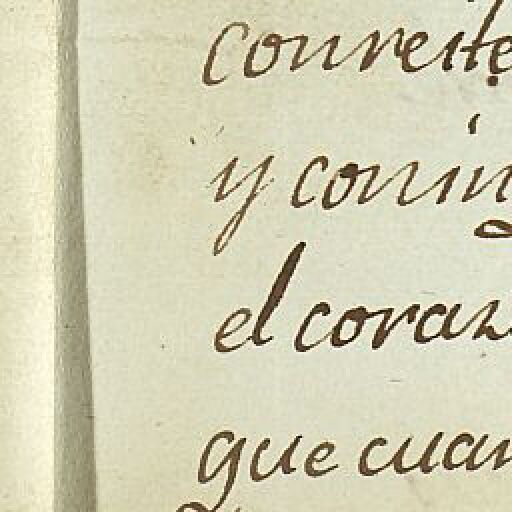 con reite
y con in
el coraz
que cuan